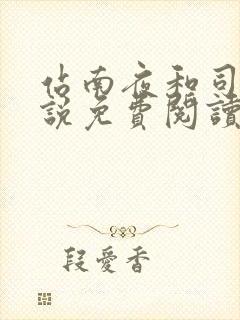 佔南夜和司
說免費閱讀
段愛香